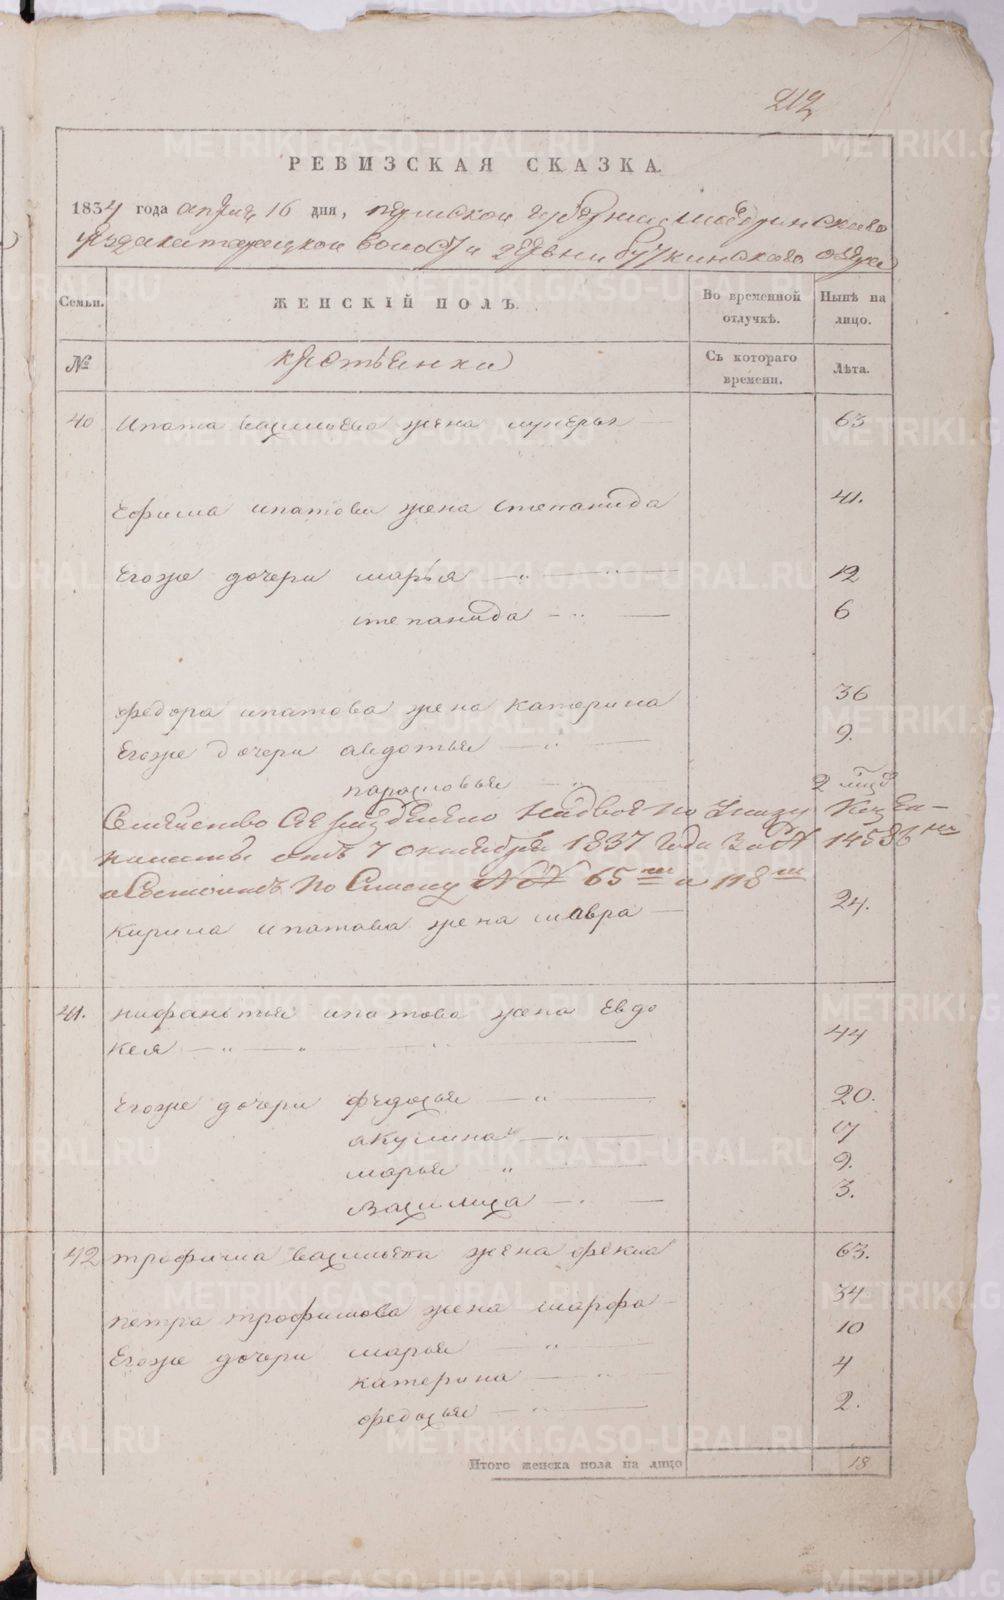 212
РЕВИЗСКАЯ СКАЗКА.
1834 года априля 16 дня, пермской губернии шадринскаго
уезда катайской волости деревни буткинскаго озера
Семьи. ЖЕНСКІЙ ПОЛЪ. Во временной отлучкѣ. Нынѣ на лицо.
№ крестьянки Съ котораго времени. Лѣта.
40 Ипата васильева жена лукерья 63
Ефима ипатова жена степанида 41.
Егоже дочери марья 12
степанида 6
федора ипатова жена катерина 36
Егоже дочери авдотья 9.
парасковья 2
Семейство сие разделено надвое по указу Казен-
ной палаты отъ 7 октября 1837 года за № 14586
а состоитъ по списку №№ 65 и 118
Кирила ипатова жена мавра 24.
41. нифантья ипатова жена Евдо
кея 44
Егоже дочери федосья 20.
акулина 17
марья 9.
василиса 3.
42 трофима васильева жена фекла 63.
петра трофимова жена марфа 34
Егоже дочери марья 10
катерина 4
федосья 2.
Итого женска пола на лицо 18
METRIKI.GASO-URAL.RU